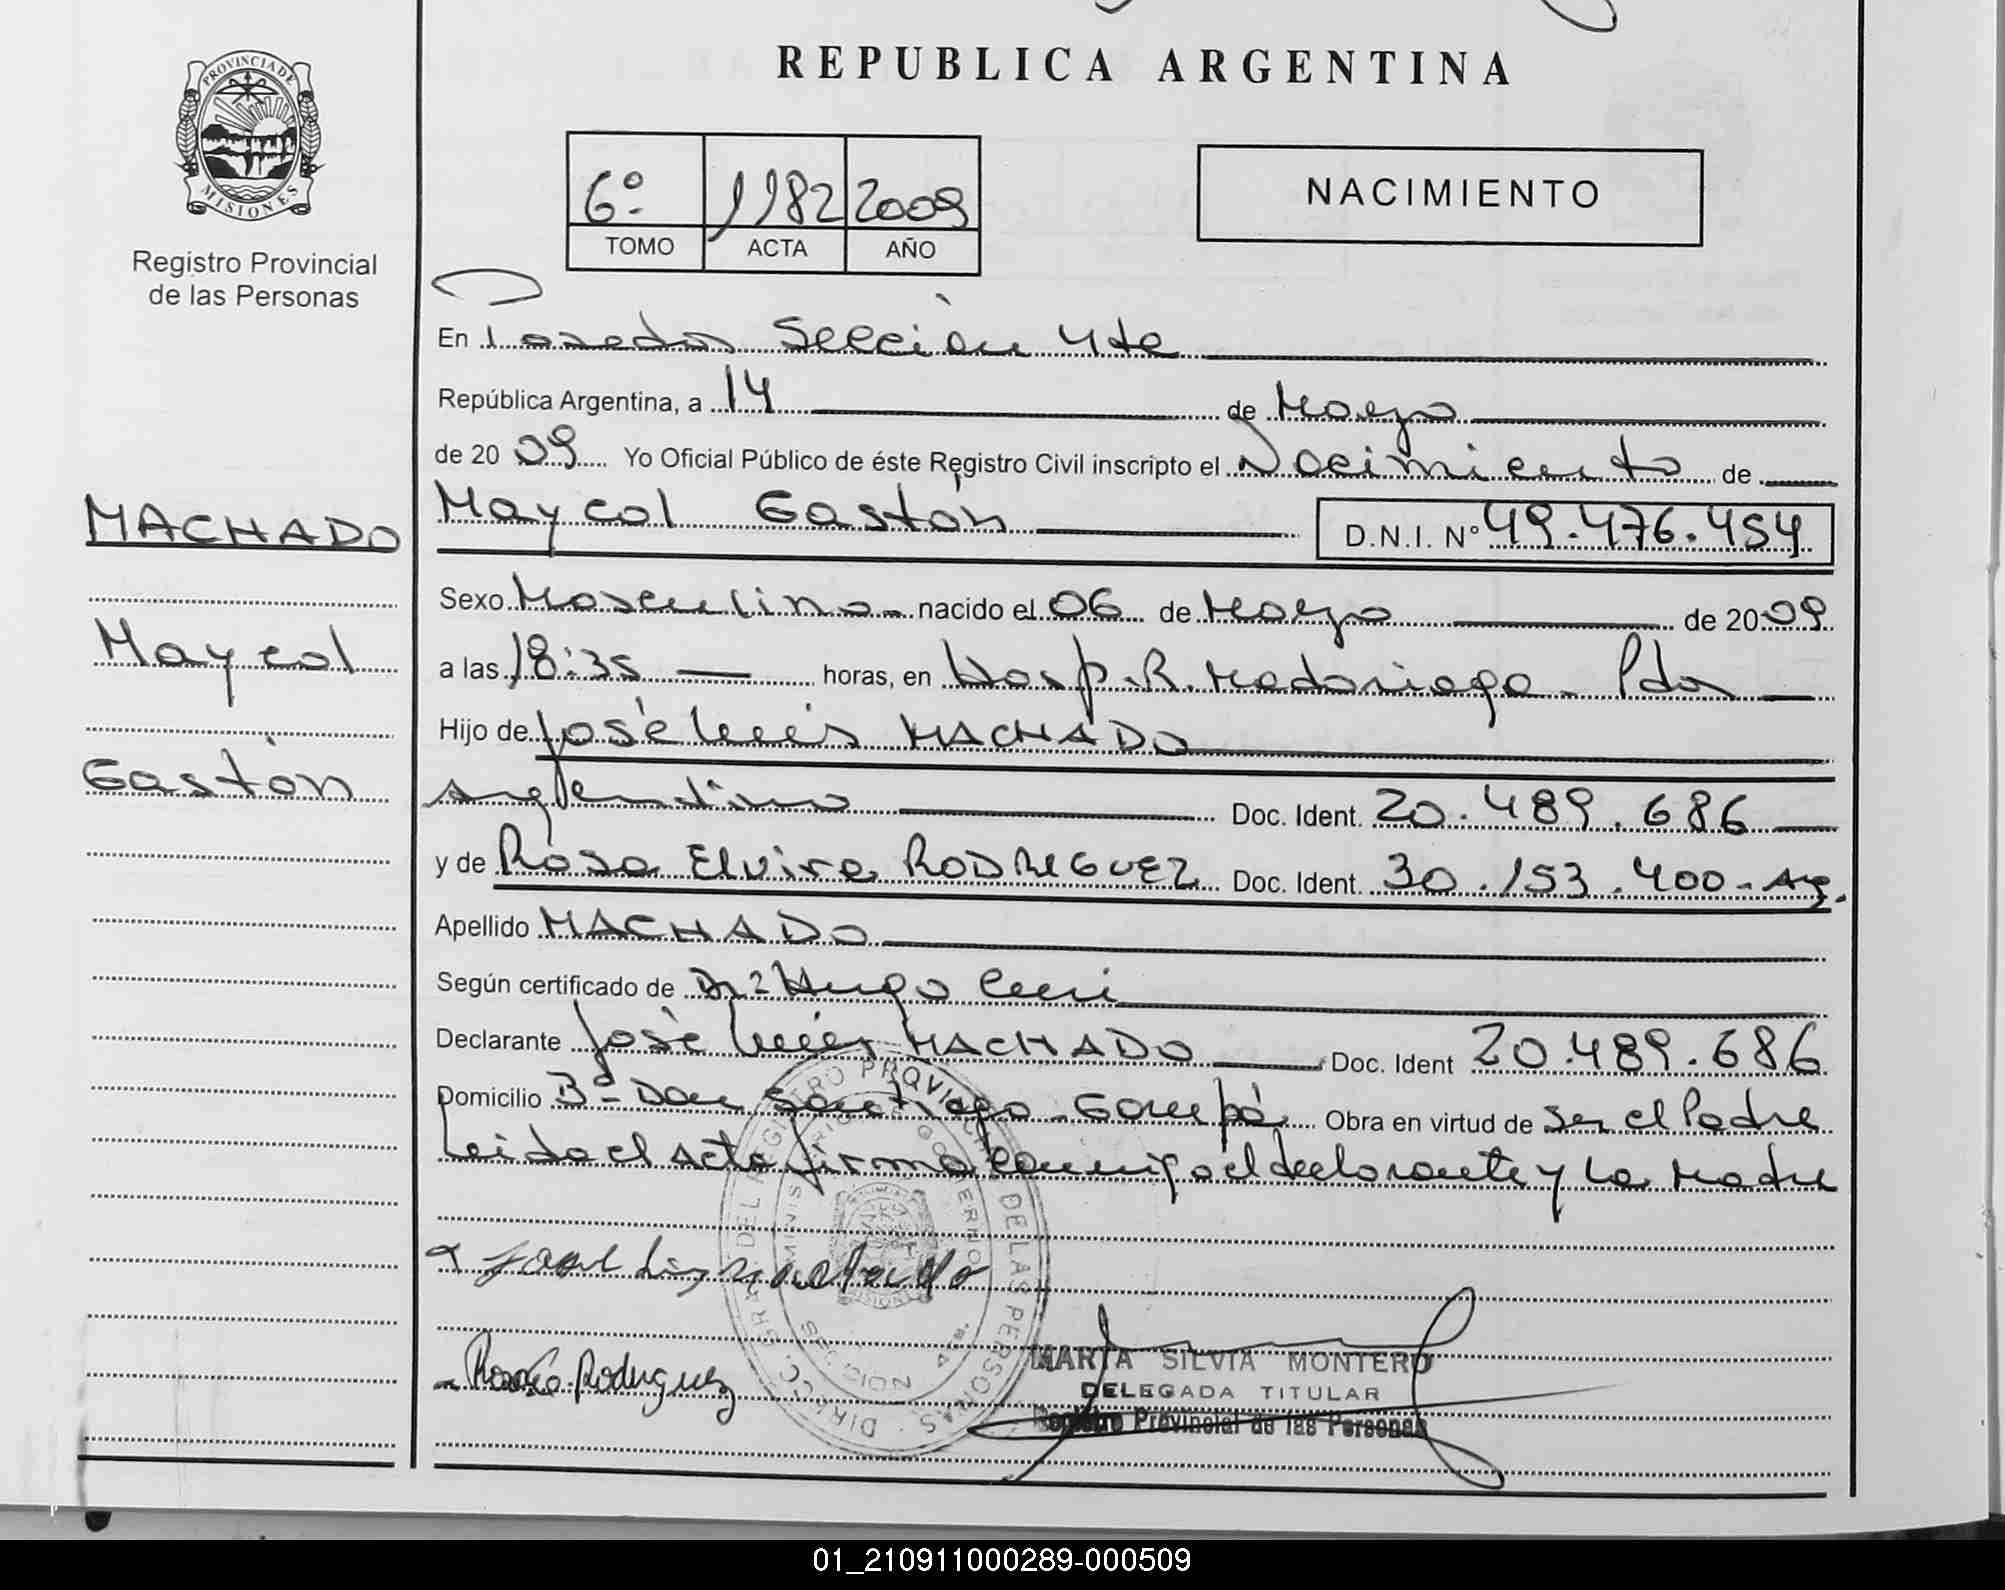 REPUBLICA ARGENTINA
PROVINCIA DE
MISIONES
Registro Provincial
de las Personas
6º 1182 2009
TOMO ACTA AÑO
NACIMIENTO
En Posadas Sección 4ta
República Argentina, a 14 de Mayo
de 2009 Yo Oficial Público de éste Registro Civil inscripto el Nacimiento de
Maycol Gastón D.N.I. Nº 49.476.454
MACHADO
Maycol
Gastón
Sexo Masculino nacido el 06 de Mayo de 2009
a las 18:35 horas, en Hosp. R. Madariaga - Pdas
Hijo de José Luis MACHADO
Argentino Doc. Ident. 20.489.686
y de Rosa Elvira RODRIGUEZ Doc. Ident. 30.153.400 - Arg.
Apellido MACHADO
Según certificado de Dr. Hugo
Declarante José Luis MACHADO Doc. Ident 20.489.686
Domicilio Bº Don Santiago - Garupá Obra en virtud de Ser el Padre
Leida el Acta firma conmigo el declarante y La Madre
Rodriguez
MARTA SILVIA MONTERO
DELEGADA TITULAR
Registro Provincial de las Personas
01_210911000289-000509